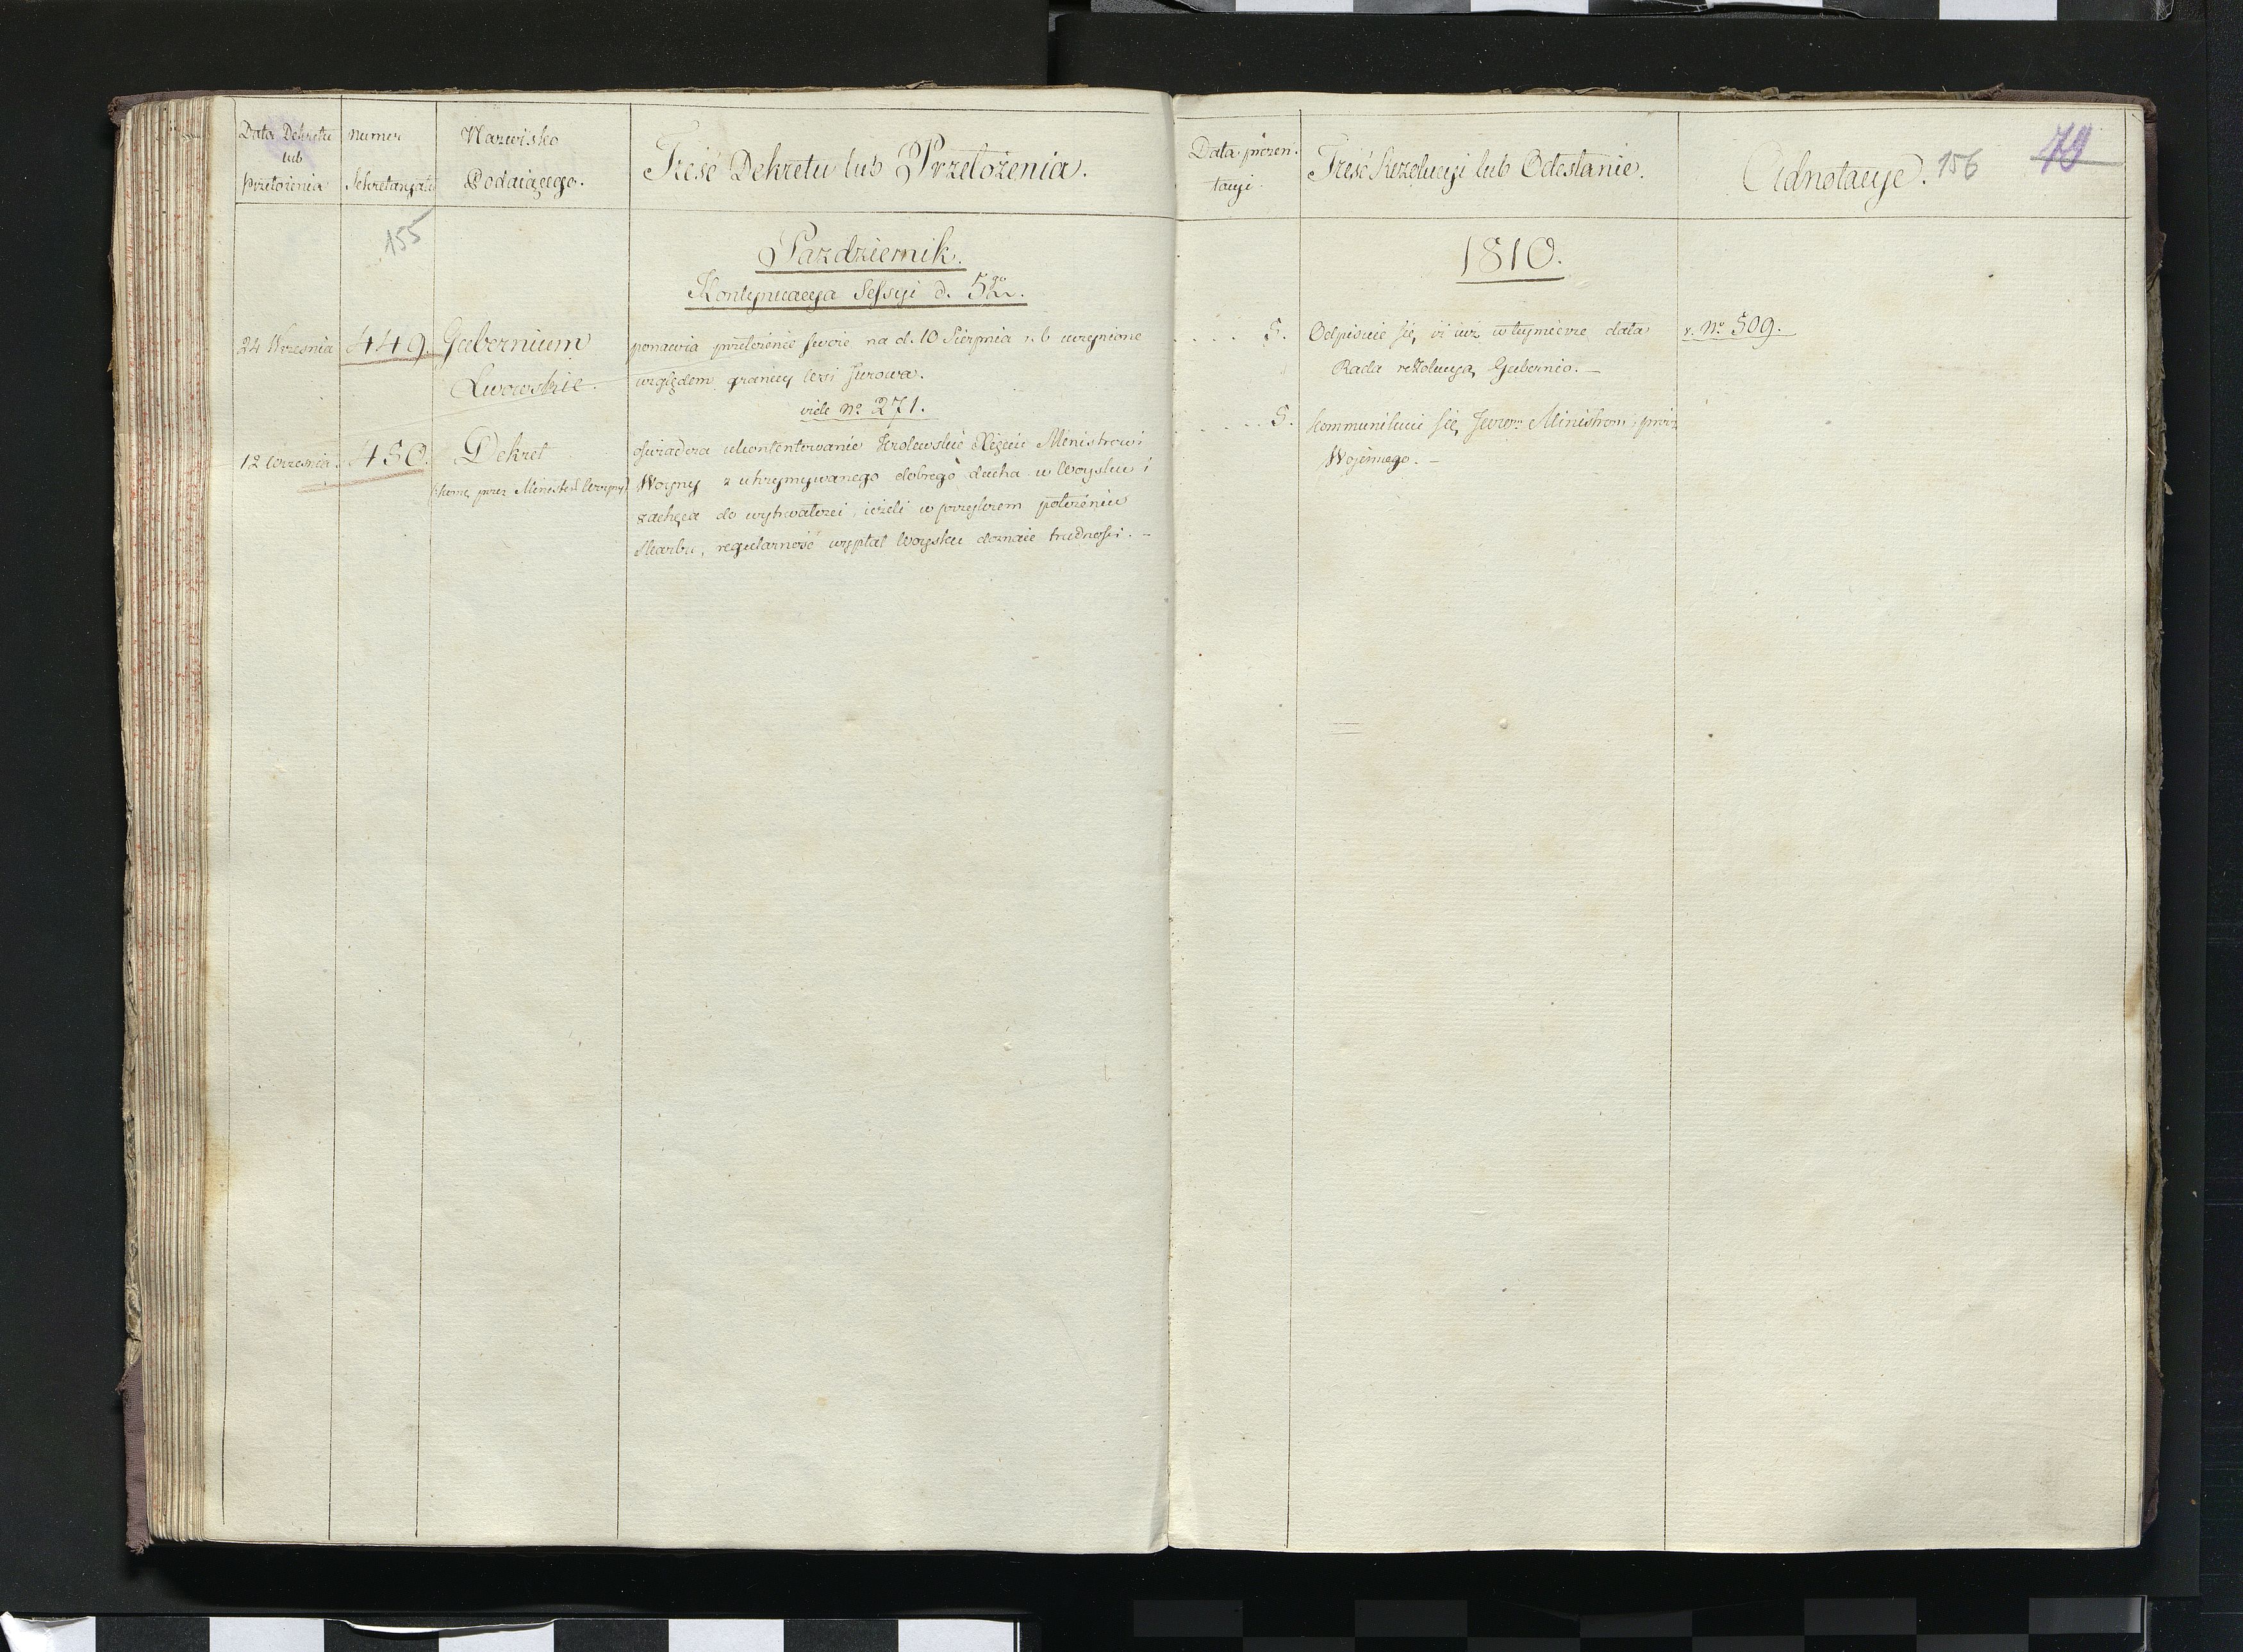 Data Dekretu
lub
Przełożenia
Numer
Sekretaryatu
Nazwisko
Podaiącego.
Treść Dekretu lub Przełożenia.
Data prezen-
tacyi.
Treść Rezolucyi lub Odesłanie.
Adnotacye.
156
79
155
Pazdziernik.
1810.
Kontynuacya Sessyi d. 5go.
24 Września
449.
Gubernium
Lwowskie.
ponawia przełożenie swoie na d. 10 Sierpnia r. b. uczynione
względem granicy wsi Jurowa.
vide No 271.
5.
Odpisuie się, iż iuż w tey mierze dała
Rada rezolucyą Gubernio. –
v. No 509.
12 Września.
450.
Dekret
kom. przez Ministra Woyny
oświadcza ukontentowanie Krolewskie Xięciu Ministrowi
Woyny z utrzymywanego dobrego ducha w Woysku i
zachęca do wytrwałości, ieżeli w przykrem położeniu
Skarbu, regularność wypłat Woysku doznaie trudności. –
5.
Kommunikuie się Ministrom
Wojennego. –